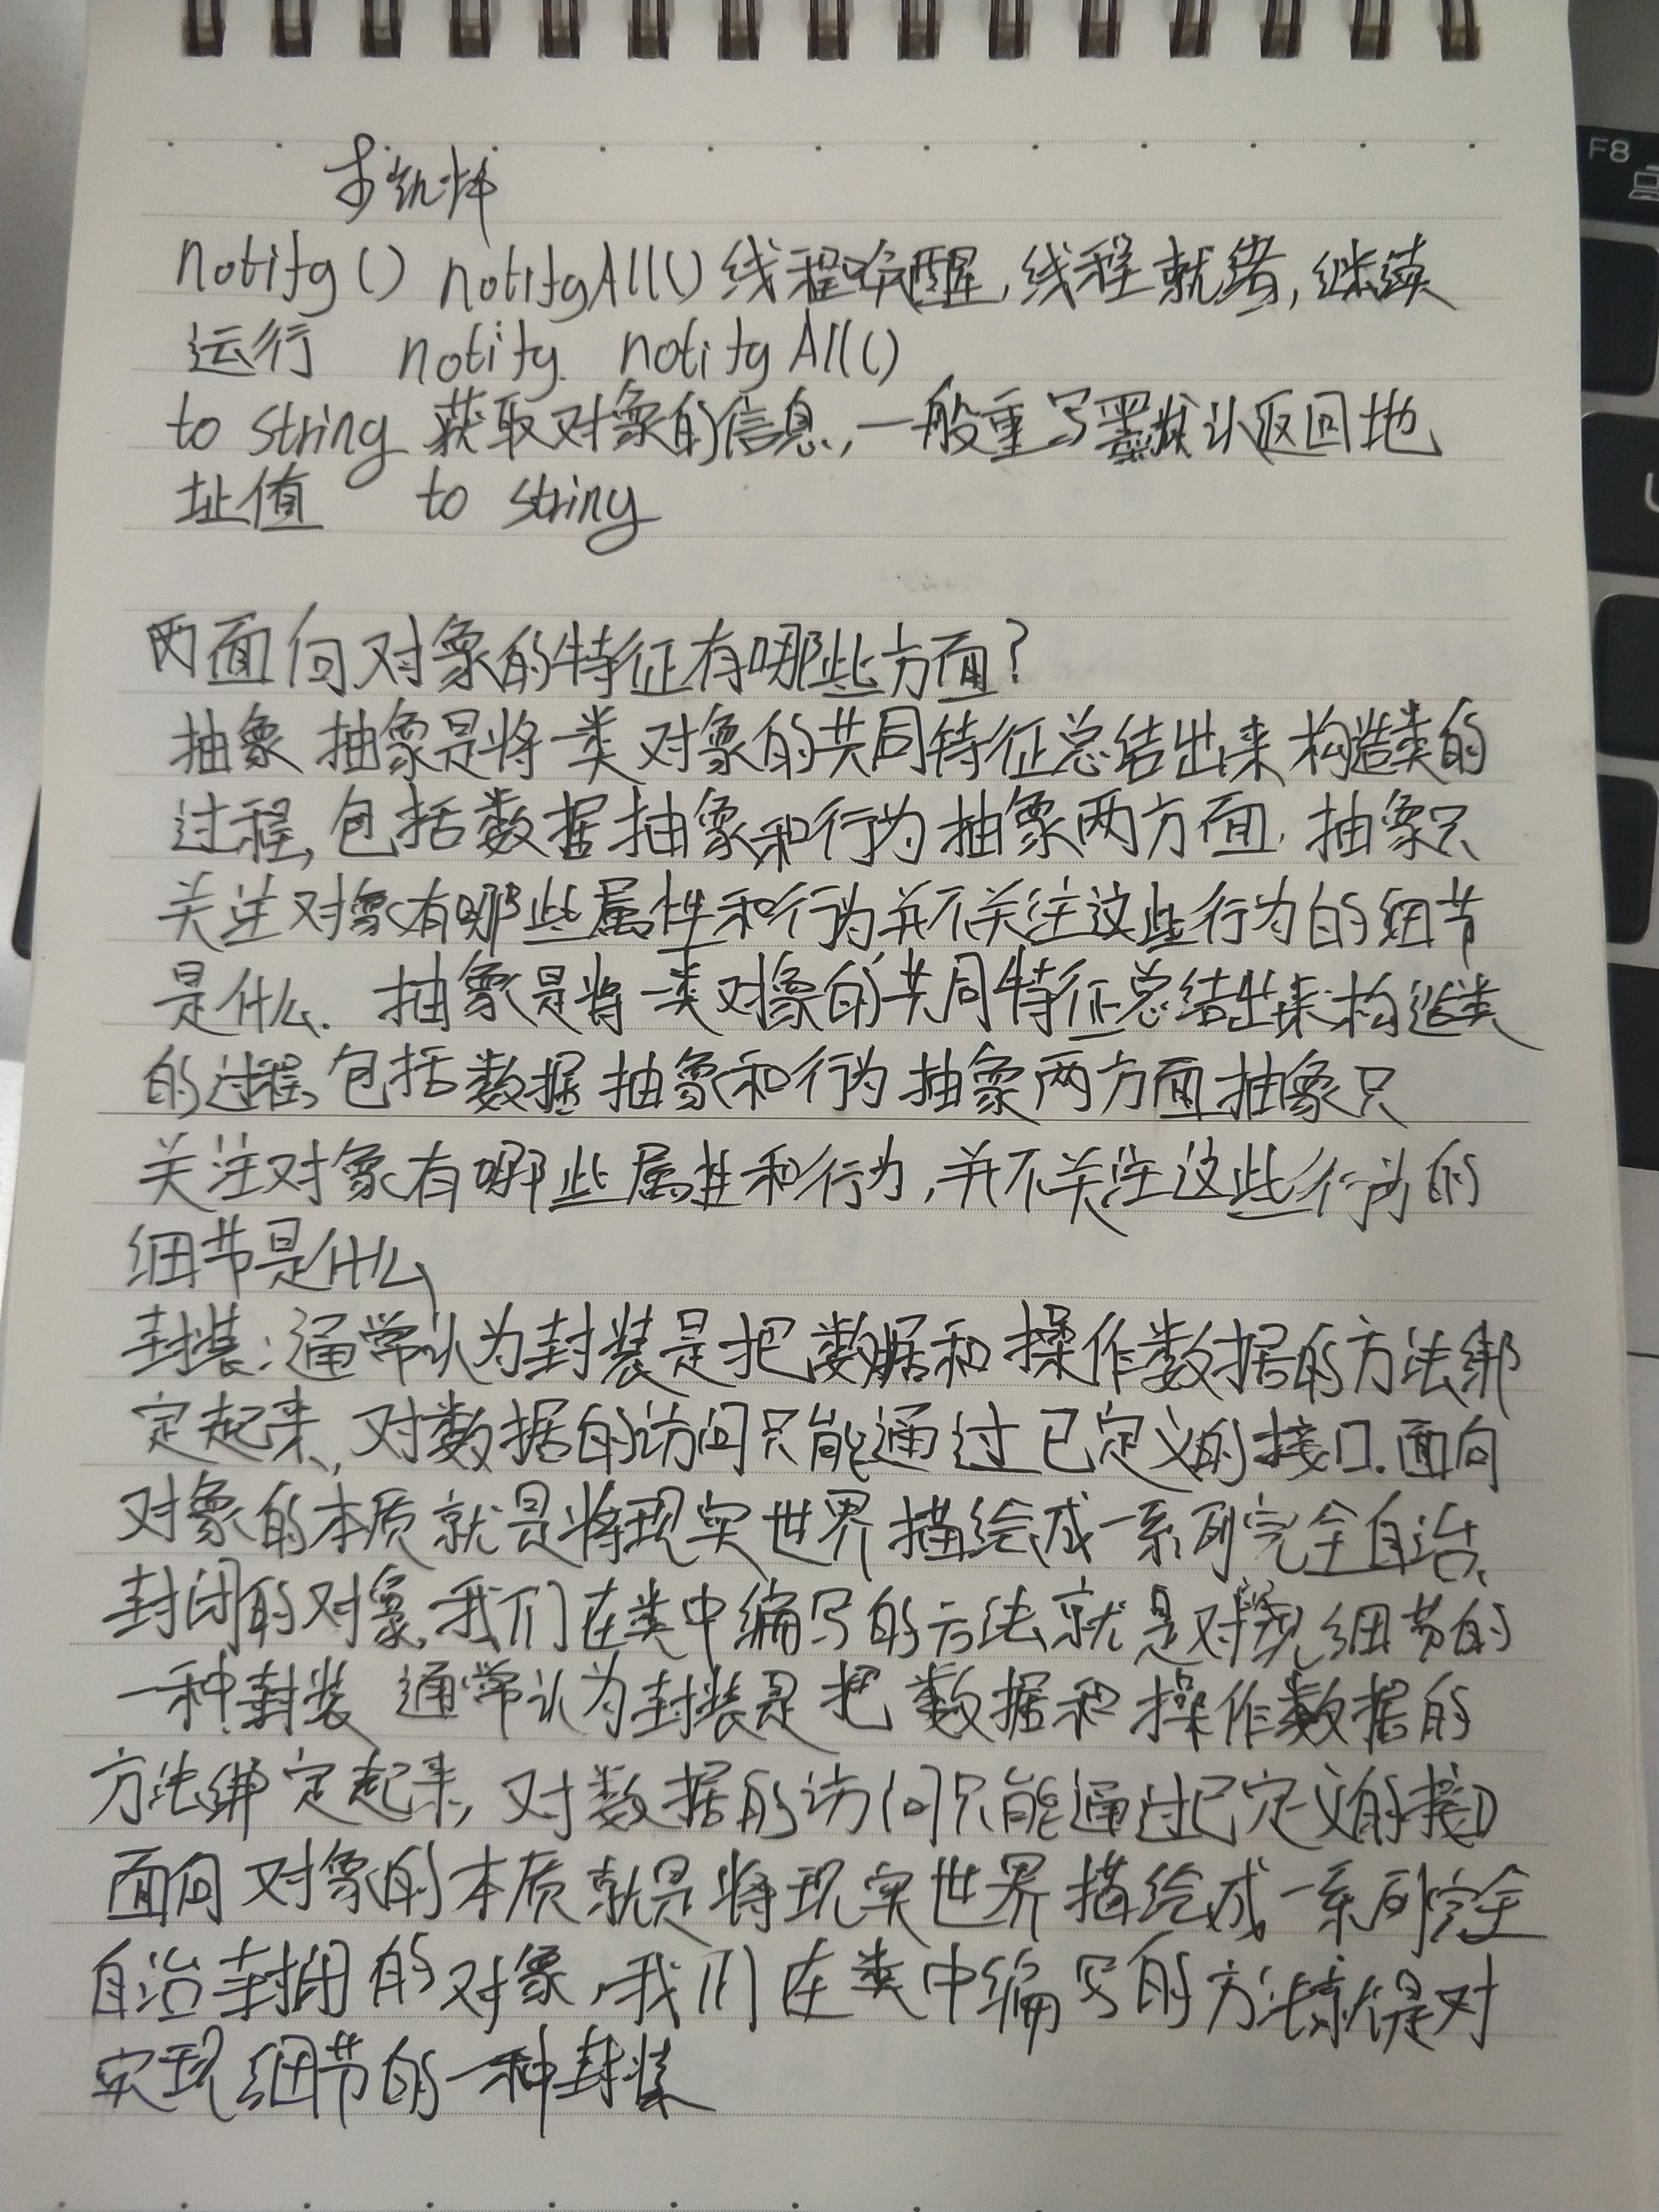 notify() notifyAll()线程唤醒,线程就绪,继续
运行 notify notifyAll()
to string 获取对象的信息,一般重写默认返回地
址值 to string
两面向对象的特征有哪些方面?
抽象 抽象是将一类对象的共同特征总结出来构造类的
过程,包括数据抽象和行为抽象两方面,抽象只
关注对象有哪些属性和行为并不关注这些行为的细节
是什么. 抽象是将一类对象的共同特征总结出来构造类
的过程,包括数据抽象和行为抽象两方面抽象只
关注对象有哪些属性和行为,并不关注这些行为的
细节是什么
封装:通常认为封装是把数据和操作数据的方法绑
定起来,对数据的访问只能通过已定义的接口.面向
对象的本质就是将现实世界描绘成一系列完全自治、
封闭的对象,我们在类中编写的方法就是对实现细节的
一种封装 通常认为封装是把数据和操作数据的
方法绑定起来,对数据的访问只能通过已定义的接口
面向对象的本质就是将现实世界描绘成一系列完全
自治封闭的对象,我们在类中编写的方法就是对
实现细节的一种封装
F8